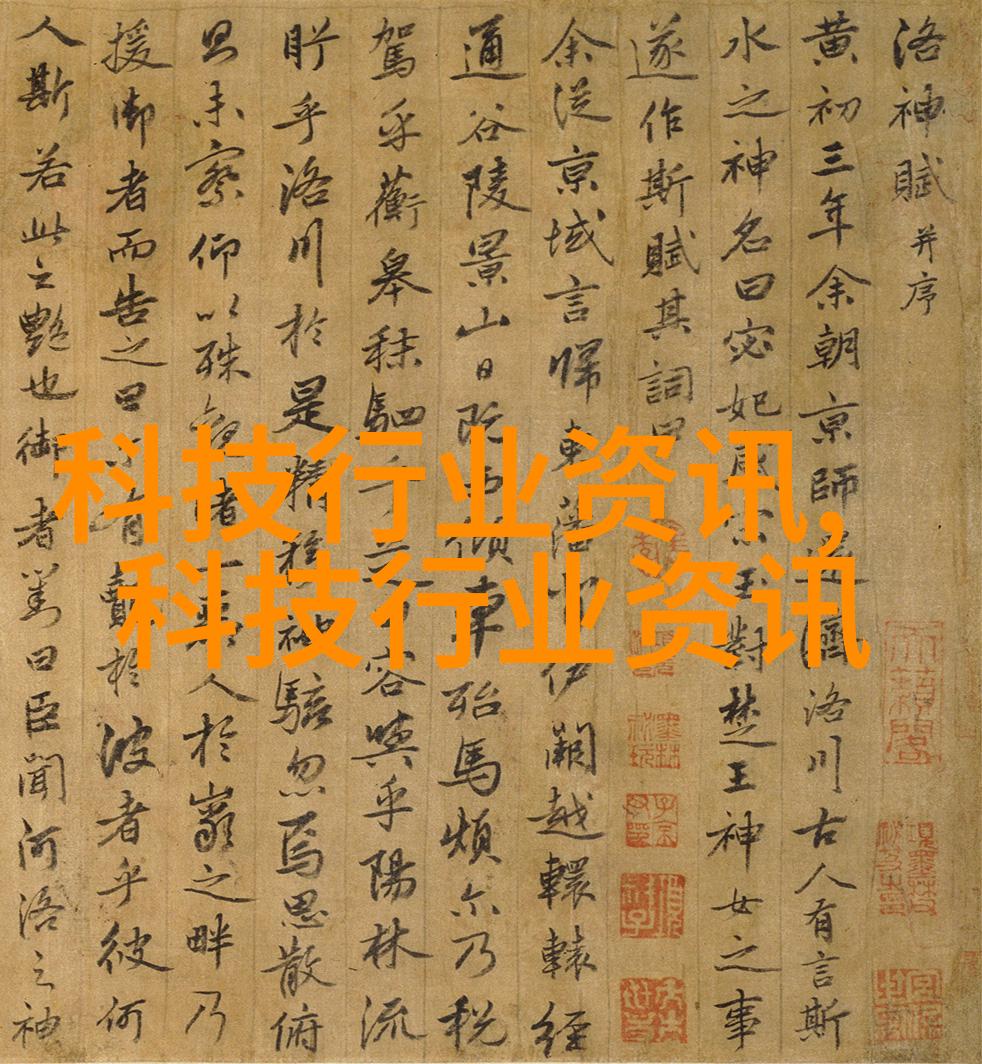 洛神賦 并序
黄初三年余朝京師還濟洛川古人有言斯
水之神名曰宓妃感宋玉對楚王神女之事
遂作斯賦其詞曰
余從京域言歸東藩背伊闕越轘轅經
通谷陵景山日既西傾車殆馬煩尒乃税
駕乎蘅皋秣駟乎容與乎陽林流
眄乎洛川於是精移神駭忽焉思散俯
則未察仰以殊觀睹一人於巖之畔乃
援御者而告之曰有覿於彼者乎彼何
人斯若此之艷也御者對曰臣聞河洛之神
科技行业资讯,
科技行业资讯